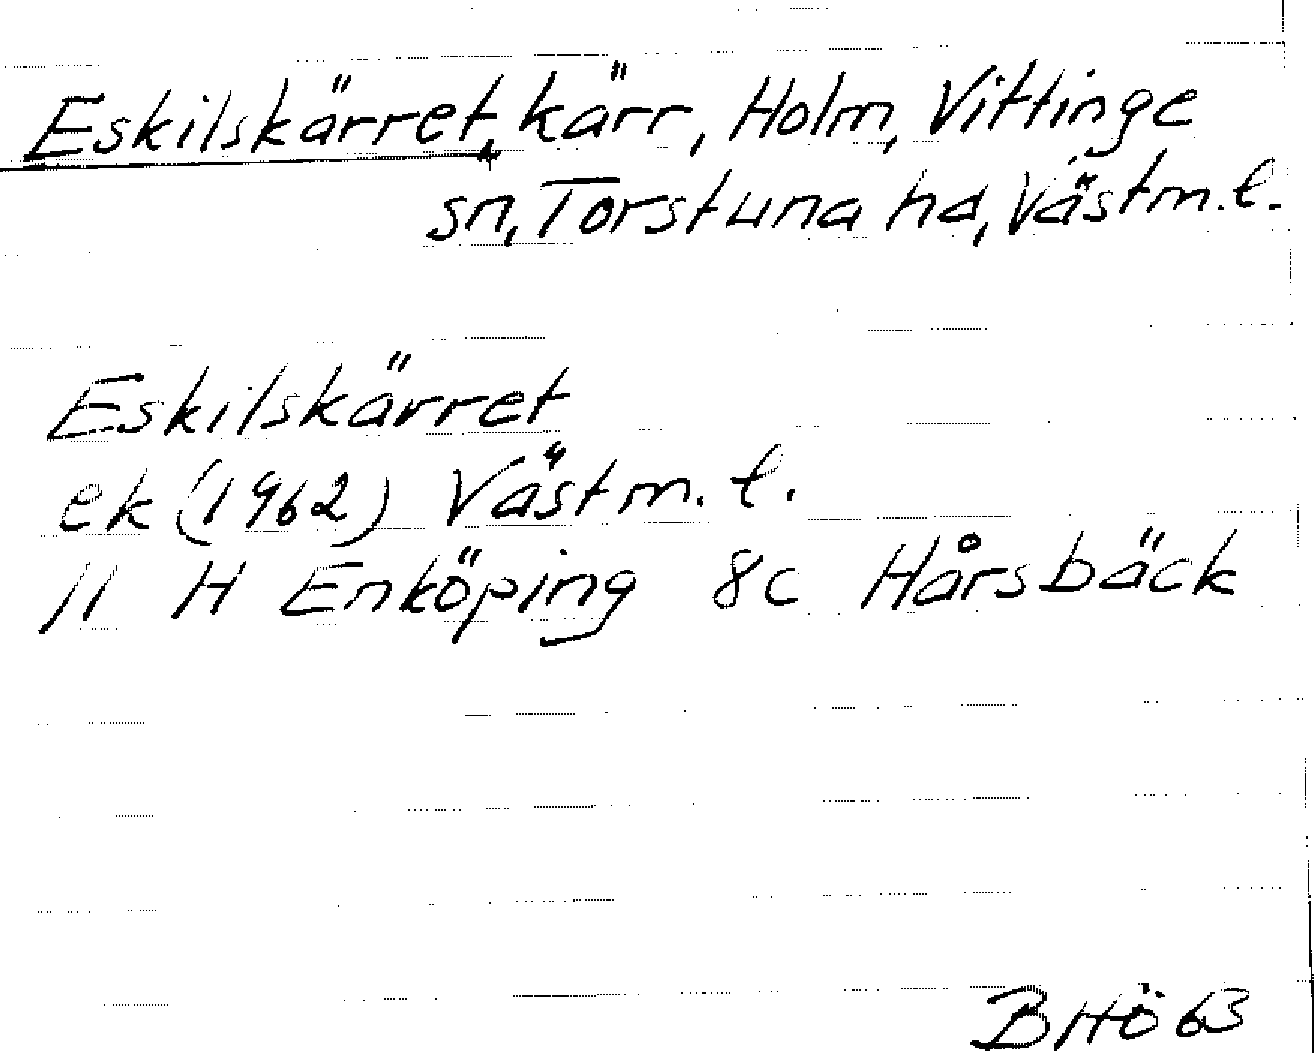 Eskilskärret, kärr, Holm, Vittinge
sn, Torstuna hd, Västm.l.
Eskilskärret
ek (1962) Västm.l.
11 H Enköping 8c Hårsbäck
BHÖ 63